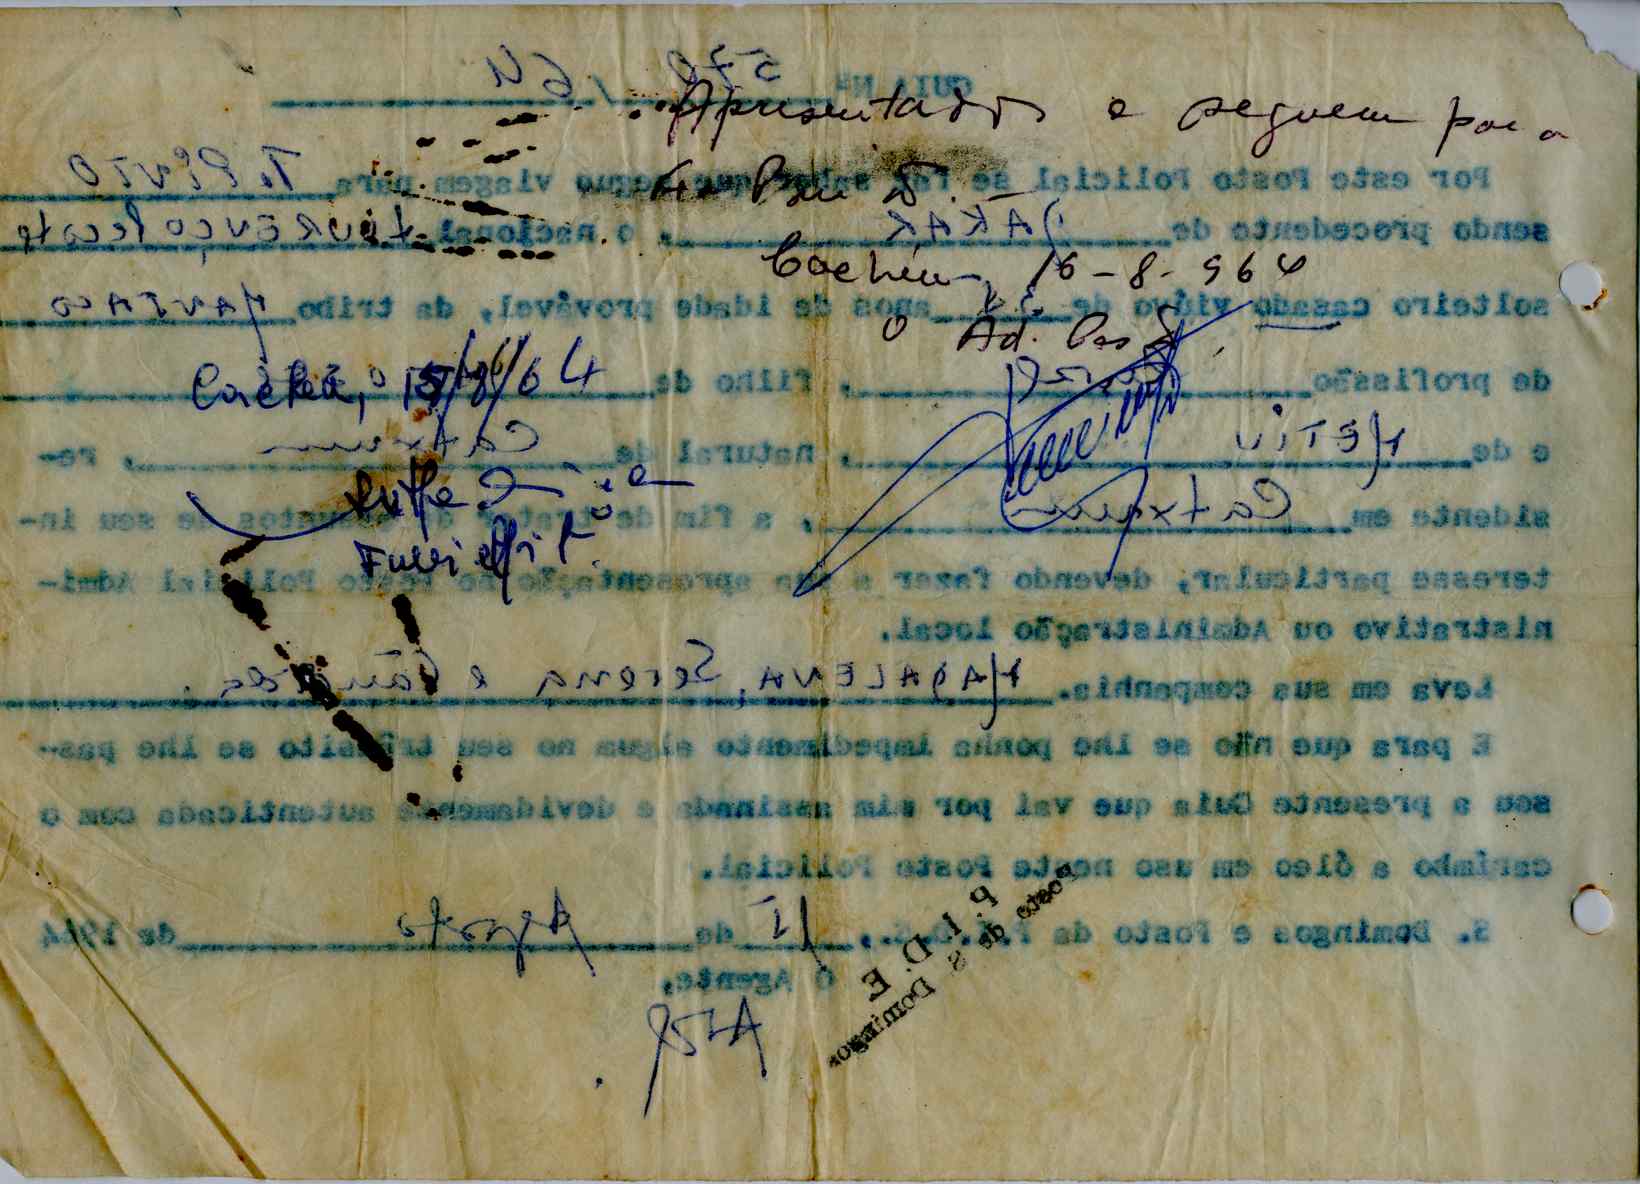 GUIA Nº 570 / 64
Apresentados e seguem para
Por este Posto Policial se faz saber que segue viagem para T. PINTO
sendo procedente de DAKAR, o nacional LOURENÇO
Cacheu, 16-8-964
solteiro casado viúvo de anos de idade provável, da tribo MANJACO
O Ad. Posto
Cacheu, 15/8/64
de profissão , filho de
e de , natural de Catxeum, re-
sidente em Catxeum, a fim de tratar de assuntos de seu in-
teresse particular, devendo fazer a sua apresentação no Posto Policial Admi-
nistrativo ou Administração local.
Leva em sua companhia. MADALENA, Serena e
E para que não se lhe ponha impedimento algum no seu trânsito se lhe pas-
sou a presente Guia que vai por mim assinada e devidamente autenticada com o
carimbo a óleo em uso neste Posto Policial.
S. Domingos e Posto da P.I.D.E., 15 de Agosto de 1964
O Agente,
P. I. D. E
Posto de S. Domingos